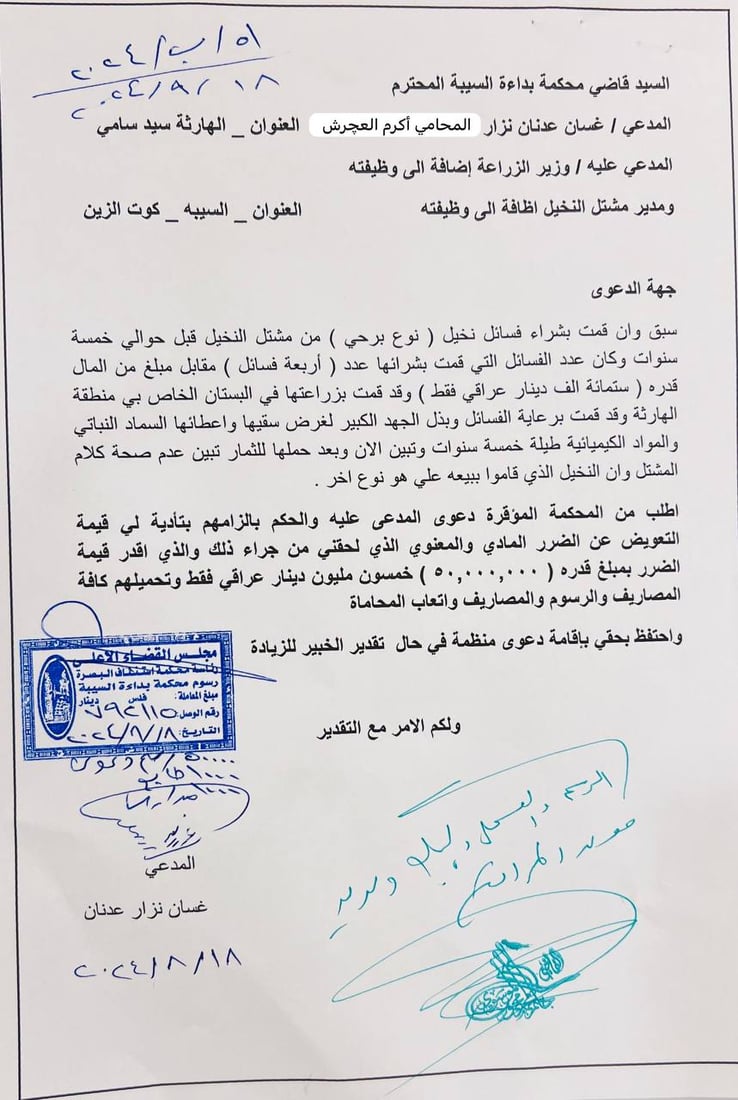 ٥١/ب/٢٠٢٤
١٨/٩/٢٠٢٤
السيد قاضي محكمة بداءة السيبة المحترم
المدعي / غسان عدنان نزار المحامي أكرم العچرش العنوان _ الهارثة سيد سامي
المدعي عليه / وزير الزراعة إضافة الى وظيفته
ومدير مشتل النخيل اظافة الى وظيفته العنوان _ السيبه _ كوت الزين
جهة الدعوى
سبق وان قمت بشراء فسائل نخيل ( نوع برحي ) من مشتل النخيل قبل حوالي خمسة
سنوات وكان عدد الفسائل التي قمت بشرائها عدد ( أربعة فسائل ) مقابل مبلغ من المال
قدره ( ستمائة الف دينار عراقي فقط ) وقد قمت بزراعتها في البستان الخاص بي منطقة
الهارثة وقد قمت برعاية الفسائل وبذل الجهد الكبير لغرض سقيها واعطائها السماد النباتي
والمواد الكيميائية طيلة خمسة سنوات وتبين الان وبعد حملها للثمار تبين عدم صحة كلام
المشتل وان النخيل الذي قاموا ببيعه علي هو نوع اخر .
اطلب من المحكمة المؤقرة دعوى المدعى عليه والحكم بالزامهم بتأدية لي قيمة
التعويض عن الضرر المادي والمعنوي الذي لحقني من جراء ذلك والذي اقدر قيمة
الضرر بمبلغ قدره ( ٥٠,٠٠٠,٠٠٠ ) خمسون مليون دينار عراقي فقط وتحميلهم كافة
المصاريف والرسوم والمصاريف واتعاب المحاماة
واحتفظ بحقي بإقامة دعوى منظمة في حال تقدير الخبير للزيادة
مجلس القضاء الأعلى
رئاسة محكمة استئناف البصرة
رسوم محكمة بداءة السيبة
مبلغ المعاملة: فلس دينار
رقم الوصل:
التاريخ:
ولكم الامر مع التقدير
الرسم والتسجيل
موعد المرافعة
المدعي
غسان نزار عدنان
٢٠٢٤/٨/١٨